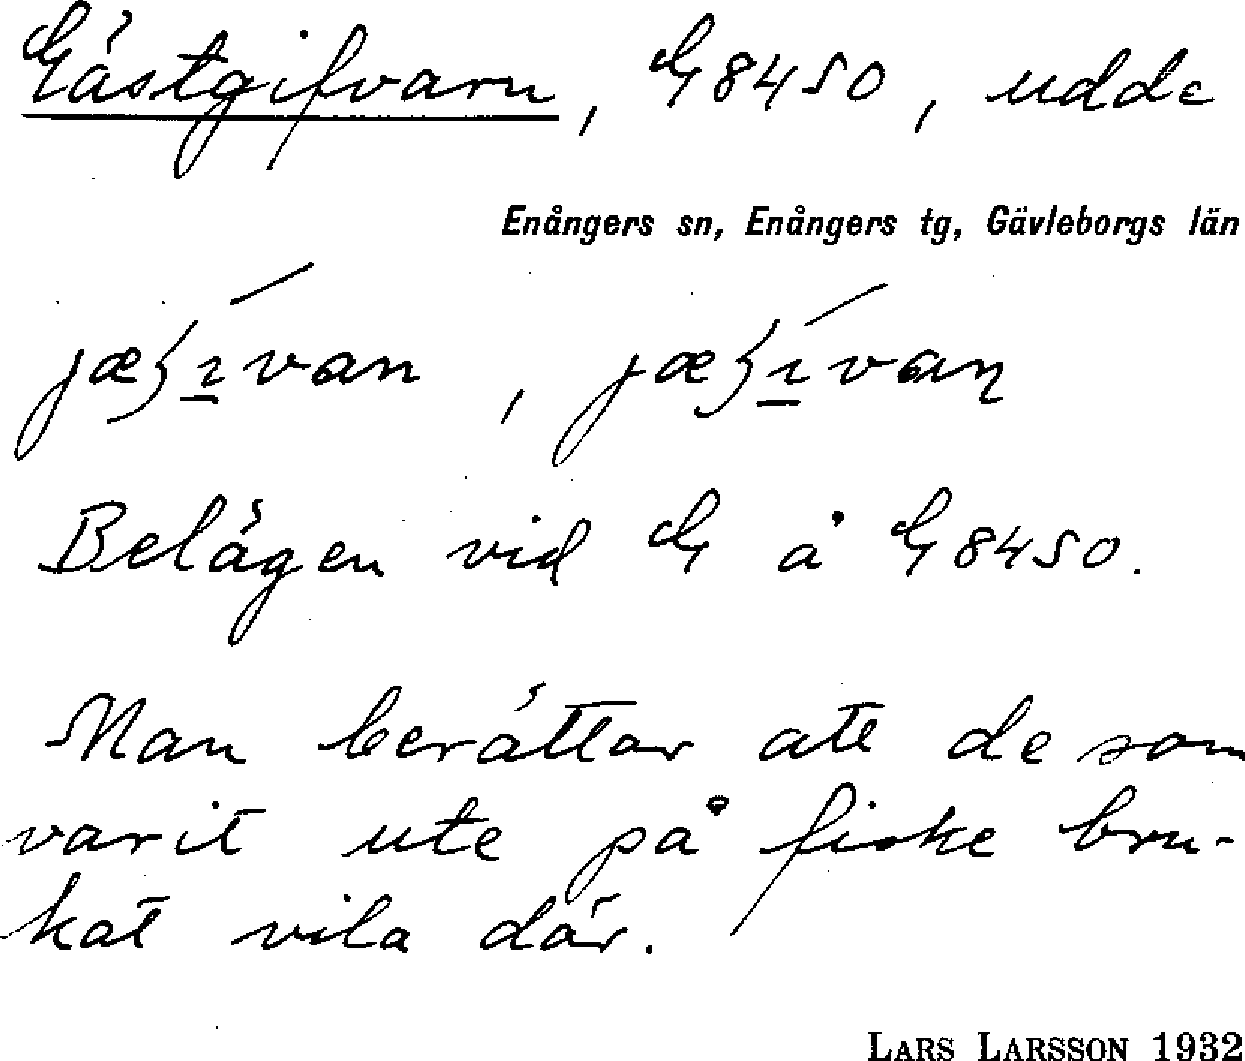 Gästgifvarn, G 8450, udde
Enångers sn, Enångers tg, Gävleborgs län
Belägen vid G å G 8450.
Man berättar att de som
varit ute på fiske bru-
kat vila där.
LARS LARSSON 1932